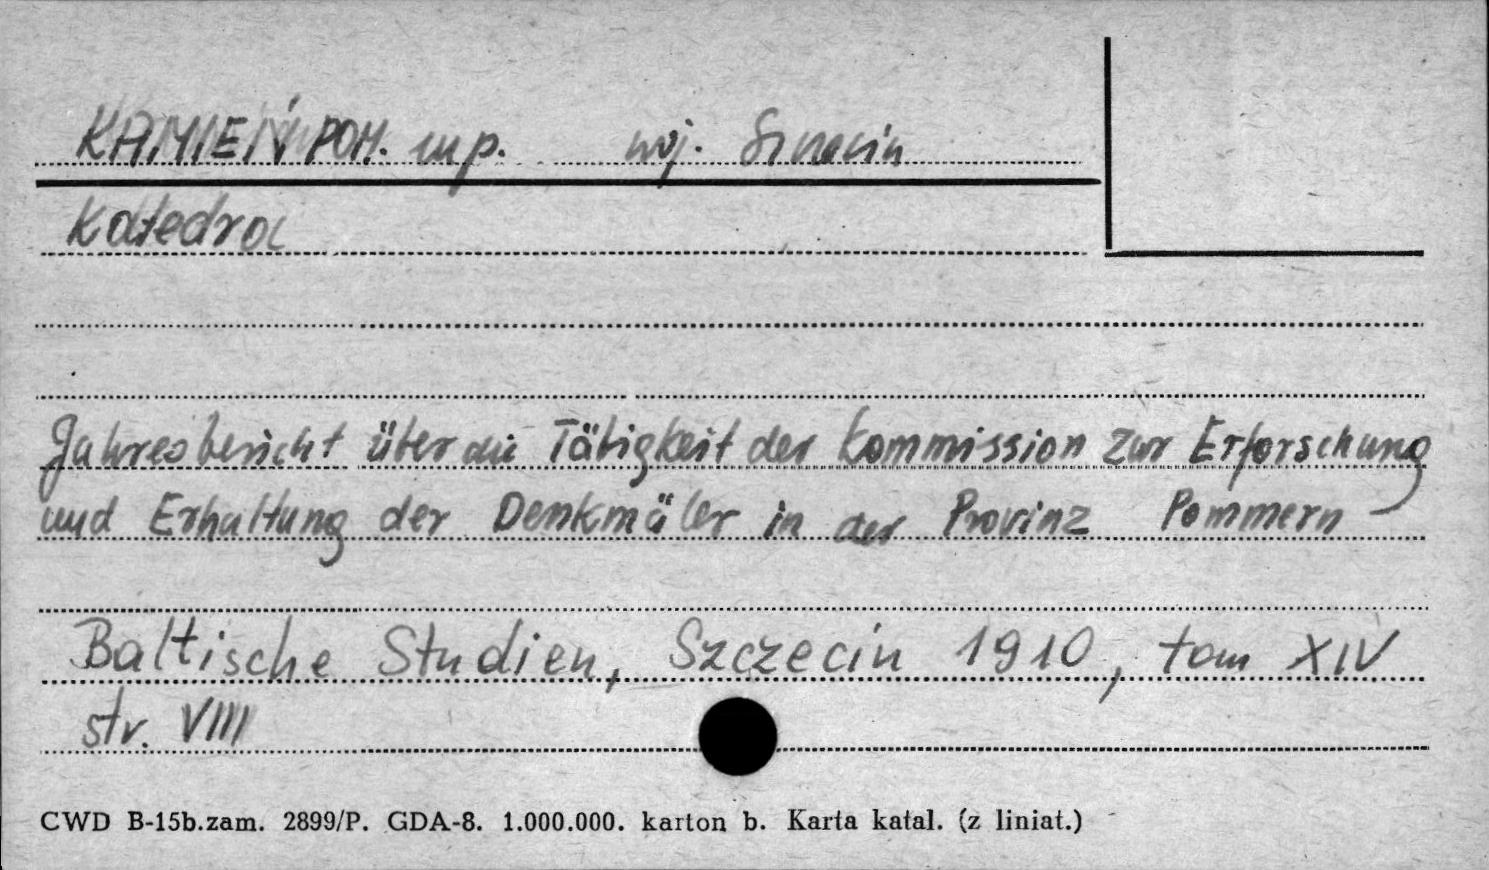 KAMIEŃ POM. m p. woj. Szczecin
Katedra
Jahresbericht über die Tätigkeit der Kommission zur Erforschung
und Erhaltung der Denkmäler in der Provinz Pommern
Baltische Studien, Szczecin 1910, tom XIV
str. VIII
CWD B-15b.zam. 2899/P. GDA-8. 1.000.000. karton b. Karta katal. (z liniat.)